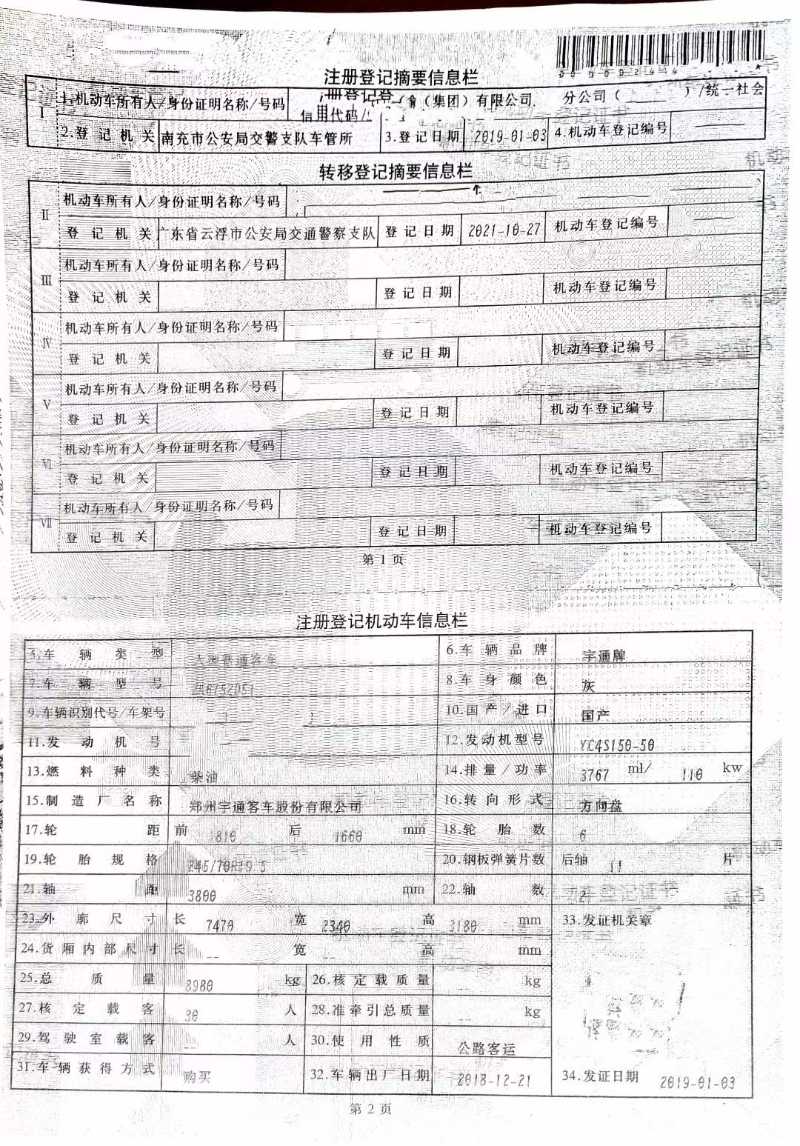 注册登记摘要信息栏
Ⅰ 1.机动车所有人/身份证明名称/号码 (集团)有限公司. 分公司( )/统一社会
信用代码/
2.登记机关 南充市公安局交警支队车管所 3.登记日期 2019-01-03 4.机动车登记编号
转移登记摘要信息栏
Ⅱ 机动车所有人/身份证明名称/号码
登记机关 广东省云浮市公安局交通警察支队 登记日期 2021-10-27 机动车登记编号
Ⅲ 机动车所有人/身份证明名称/号码
登记机关 登记日期 机动车登记编号
Ⅳ 机动车所有人/身份证明名称/号码
登记机关 登记日期 机动车登记编号
Ⅴ 机动车所有人/身份证明名称/号码
登记机关 登记日期 机动车登记编号
Ⅵ 机动车所有人/身份证明名称/号码
登记机关 登记日期 机动车登记编号
Ⅶ 机动车所有人/身份证明名称/号码
登记机关 登记日期 机动车登记编号
第1页
注册登记机动车信息栏
5.车辆类型 大型普通客车 6.车辆品牌 宇通牌
7.车辆型号 8.车身颜色 灰
9.车辆识别代号/车架号 10.国产/进口 国产
11.发动机号 12.发动机型号 YC4S150-50
13.燃料种类 柴油 14.排量/功率 3767 ml/ 110 kw
15.制造厂名称 郑州宇通客车股份有限公司 16.转向形式 方向盘
17.轮距 前 1810 后 1660 mm 18.轮胎数 6
19.轮胎规格 245/70R19.5 20.钢板弹簧片数 后轴 片
21.轴距 3800 mm 22.轴数 2
23.外廓尺寸 长 7470 宽 2340 高 3180 mm 33.发证机关章
24.货厢内部尺寸 长 -- 宽 -- 高 -- mm
25.总质量 8980 kg 26.核定载质量 -- kg
27.核定载客 30 人 28.准牵引总质量 -- kg
29.驾驶室载客 -- 人 30.使用性质 公路客运
31.车辆获得方式 购买 32.车辆出厂日期 2018-12-21 34.发证日期 2019-01-03
第2页